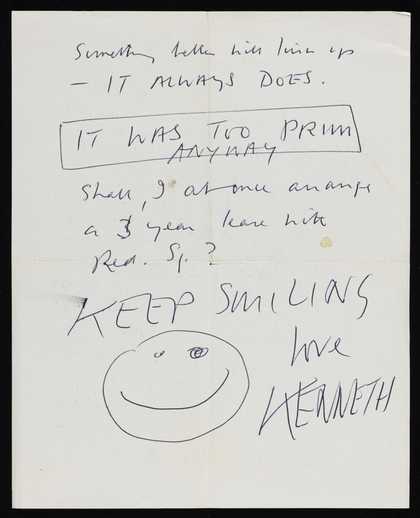 Something better will turn up
— IT ALWAYS DOES.
IT WAS TOO PRIM
ANYWAY
Shall I at once arrange
a 3 year lease with
Red. Sq. ?
KEEP SMILING
love
KENNETH